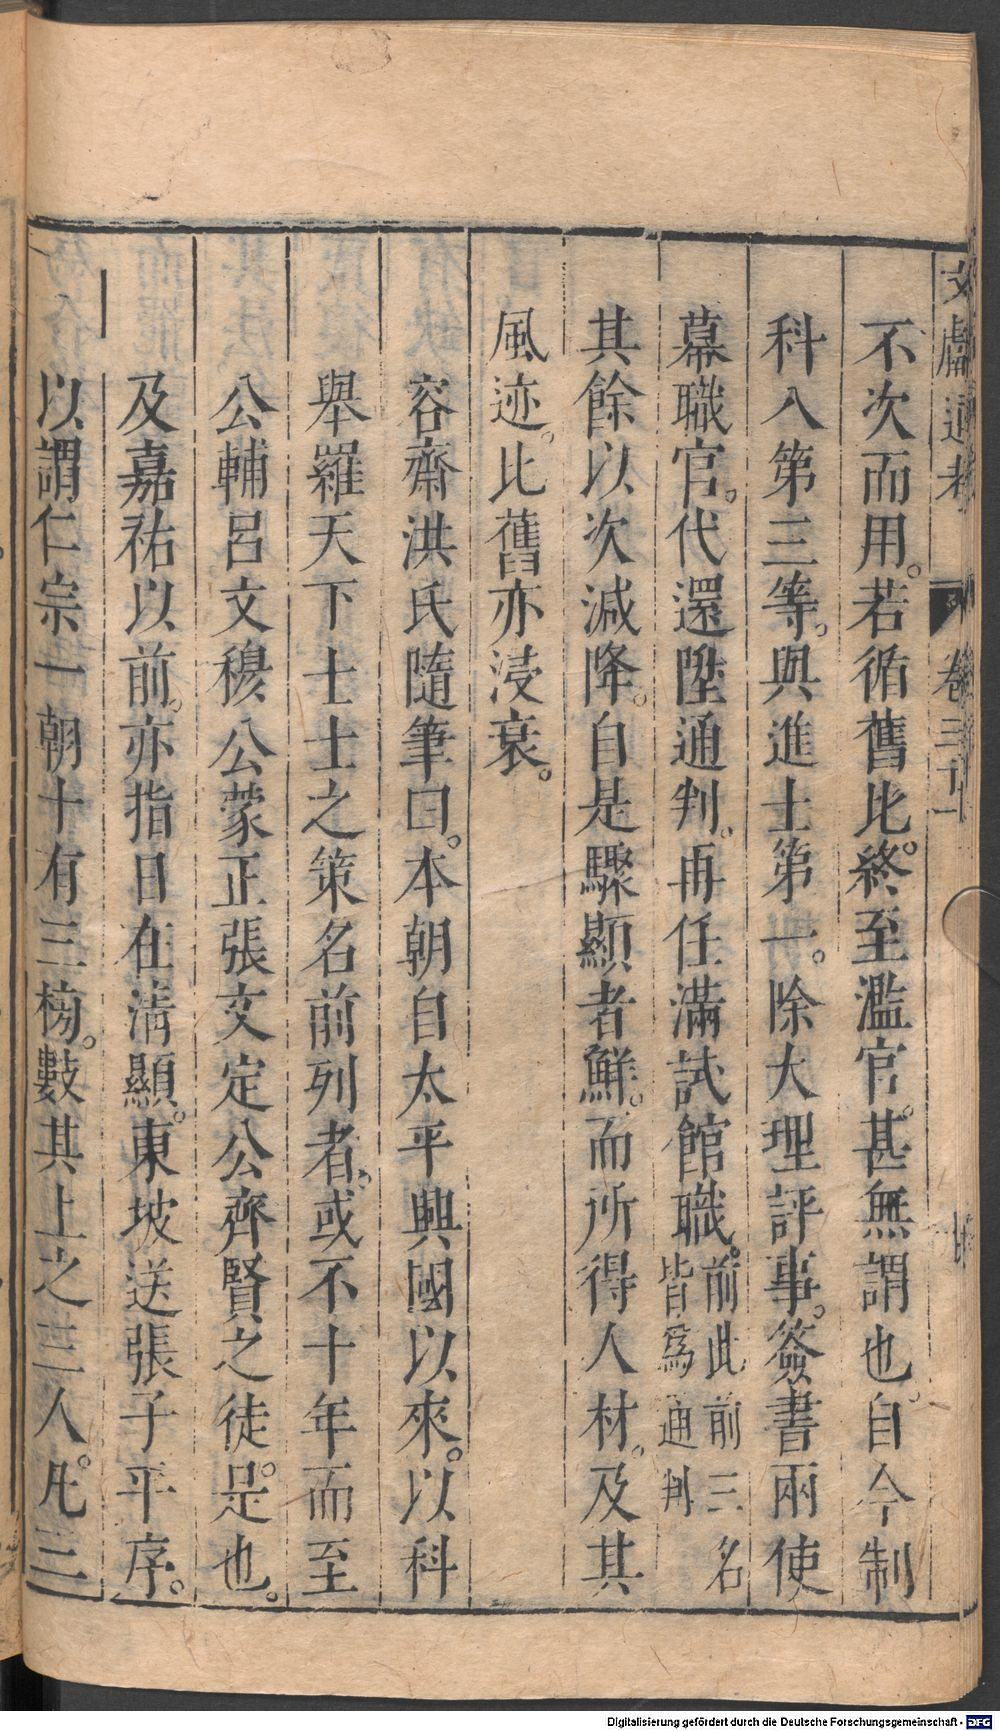 文獻通考 卷三十一
不次而用。若循舊比。終至濫官。甚無謂也。自今制
科入第三等。與進士第一。除大理評事。簽書兩使
幕職官。代還陞通判。再任滿試館職。前此前三名皆爲通判
其餘以次減降。自是驟顯者鮮。而所得人材。及其
風迹。比舊亦浸衰。
容齋洪氏隨筆曰。本朝自太平興國以來。以科
舉羅天下士士之策名前列者。或不十年而至
公輔呂文穆公蒙正張文定公齊賢之徒。是也。
及嘉祐以前。亦指日在清顯。東坡送張子平序。
以謂仁宗一朝十有三榜。數其上之三人。凡三
Digitalisierung gefördert durch die Deutsche Forschungsgemeinschaft - DFG